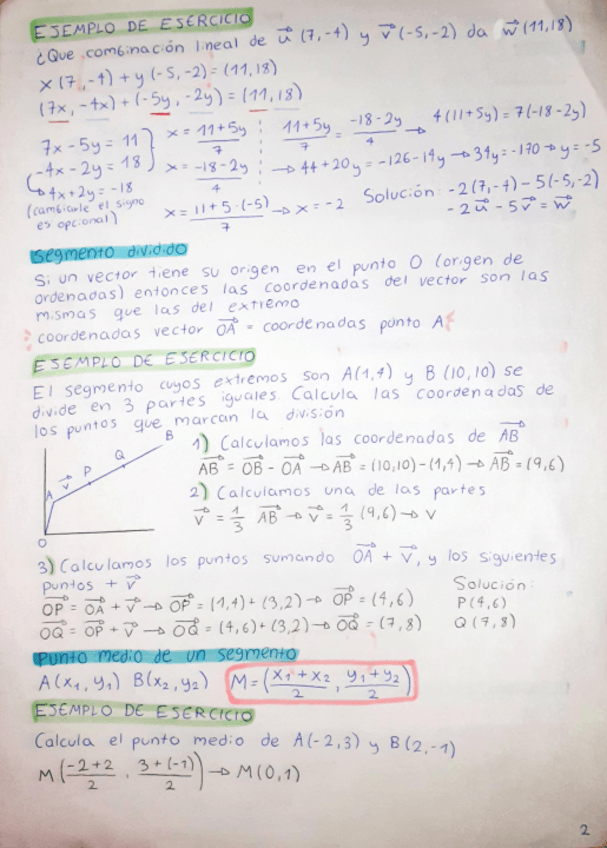 EJEMPLO DE EJERCICIO
¿Que combinación lineal de u⃗ (7,-4) y v⃗ (-5,-2) da w⃗ (11,18)
x(7,-4)+y(-5,-2)=(11,18)
(7x,-4x)+(-5y,-2y)=(11,18)
7x-5y=11
-4x-2y=18
4x+2y=-18
(cambiarle el signo
es opcional)
x = (11+5y)/7
x = (-18-2y)/4
x = (11+5·(-5))/7 → x=-2
(11+5y)/7 = (-18-2y)/4 → 4(11+5y)=7(-18-2y)
→ 44+20y=-126-14y → 34y=-170 → y=-5
Solución: -2(7,-4)-5(-5,-2)
-2u⃗-5v⃗=w⃗
segmento dividido
Si un vector tiene su origen en el punto O (origen de
ordenadas) entonces las coordenadas del vector son las
mismas que las del extremo
coordenadas vector OA⃗ = coordenadas punto A
EJEMPLO DE EJERCICIO
El segmento cuyos extremos son A(1,4) y B (10,10) se
divide en 3 partes iguales. Calcula las coordenadas de
los puntos que marcan la división
B
Q
P
v⃗
A
O
1) Calculamos las coordenadas de AB⃗
AB⃗ = OB⃗ - OA⃗ → AB⃗ = (10,10)-(1,4) → AB⃗ = (9,6)
2) Calculamos una de las partes
v⃗ = 1/3 AB⃗ → v⃗ = 1/3 (9,6) → v
3) Calculamos los puntos sumando OA⃗ + v⃗, y los siguientes
puntos + v⃗
OP⃗ = OA⃗ + v⃗ → OP⃗ = (1,4)+(3,2) → OP⃗ = (4,6)
OQ⃗ = OP⃗ + v⃗ → OQ⃗ = (4,6)+(3,2) → OQ⃗ = (7,8)
Solución:
P(4,6)
Q(7,8)
punto medio de un segmento
A(x₁,y₁) B(x₂,y₂) M=((x₁+x₂)/2, (y₁+y₂)/2)
EJEMPLO DE EJERCICIO
Calcula el punto medio de A(-2,3) y B(2,-1)
M((-2+2)/2, (3+(-1))/2) → M(0,1)
2